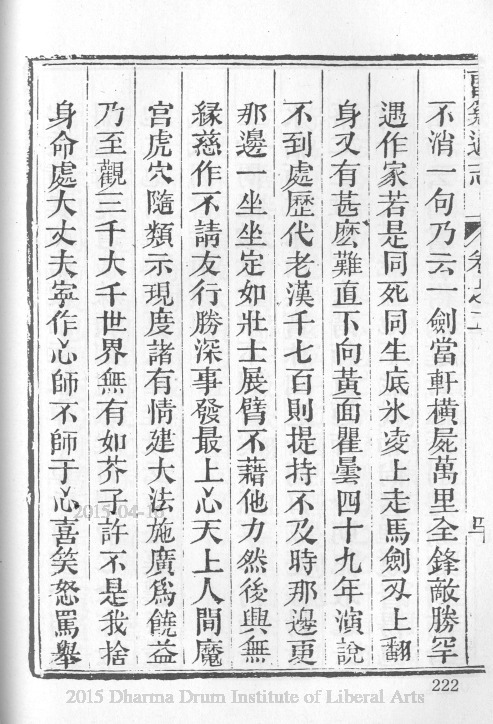 不消一句乃云一劍當軒橫屍萬里全鋒敵勝罕
遇作家若是同死同生底氷凌上走馬劍刄上翻
身又有甚麽難直下向黃面瞿曇四十九年演說
不到處歷代老漢千七百則提持不及時那邊更
那邊一坐坐定如壯士展臂不藉他力然後興無
緣慈作不請友行勝深事發最上心天上人間魔
宮虎穴隨類示現度諸有情建大法施廣爲饒益
乃至觀三千大千世界無有如芥子許不是我捨
身命處大丈夫寧作心師不師于心喜笑怒罵舉
222
2015-04-1
2015 Dharma Drum Institute of Liberal Arts